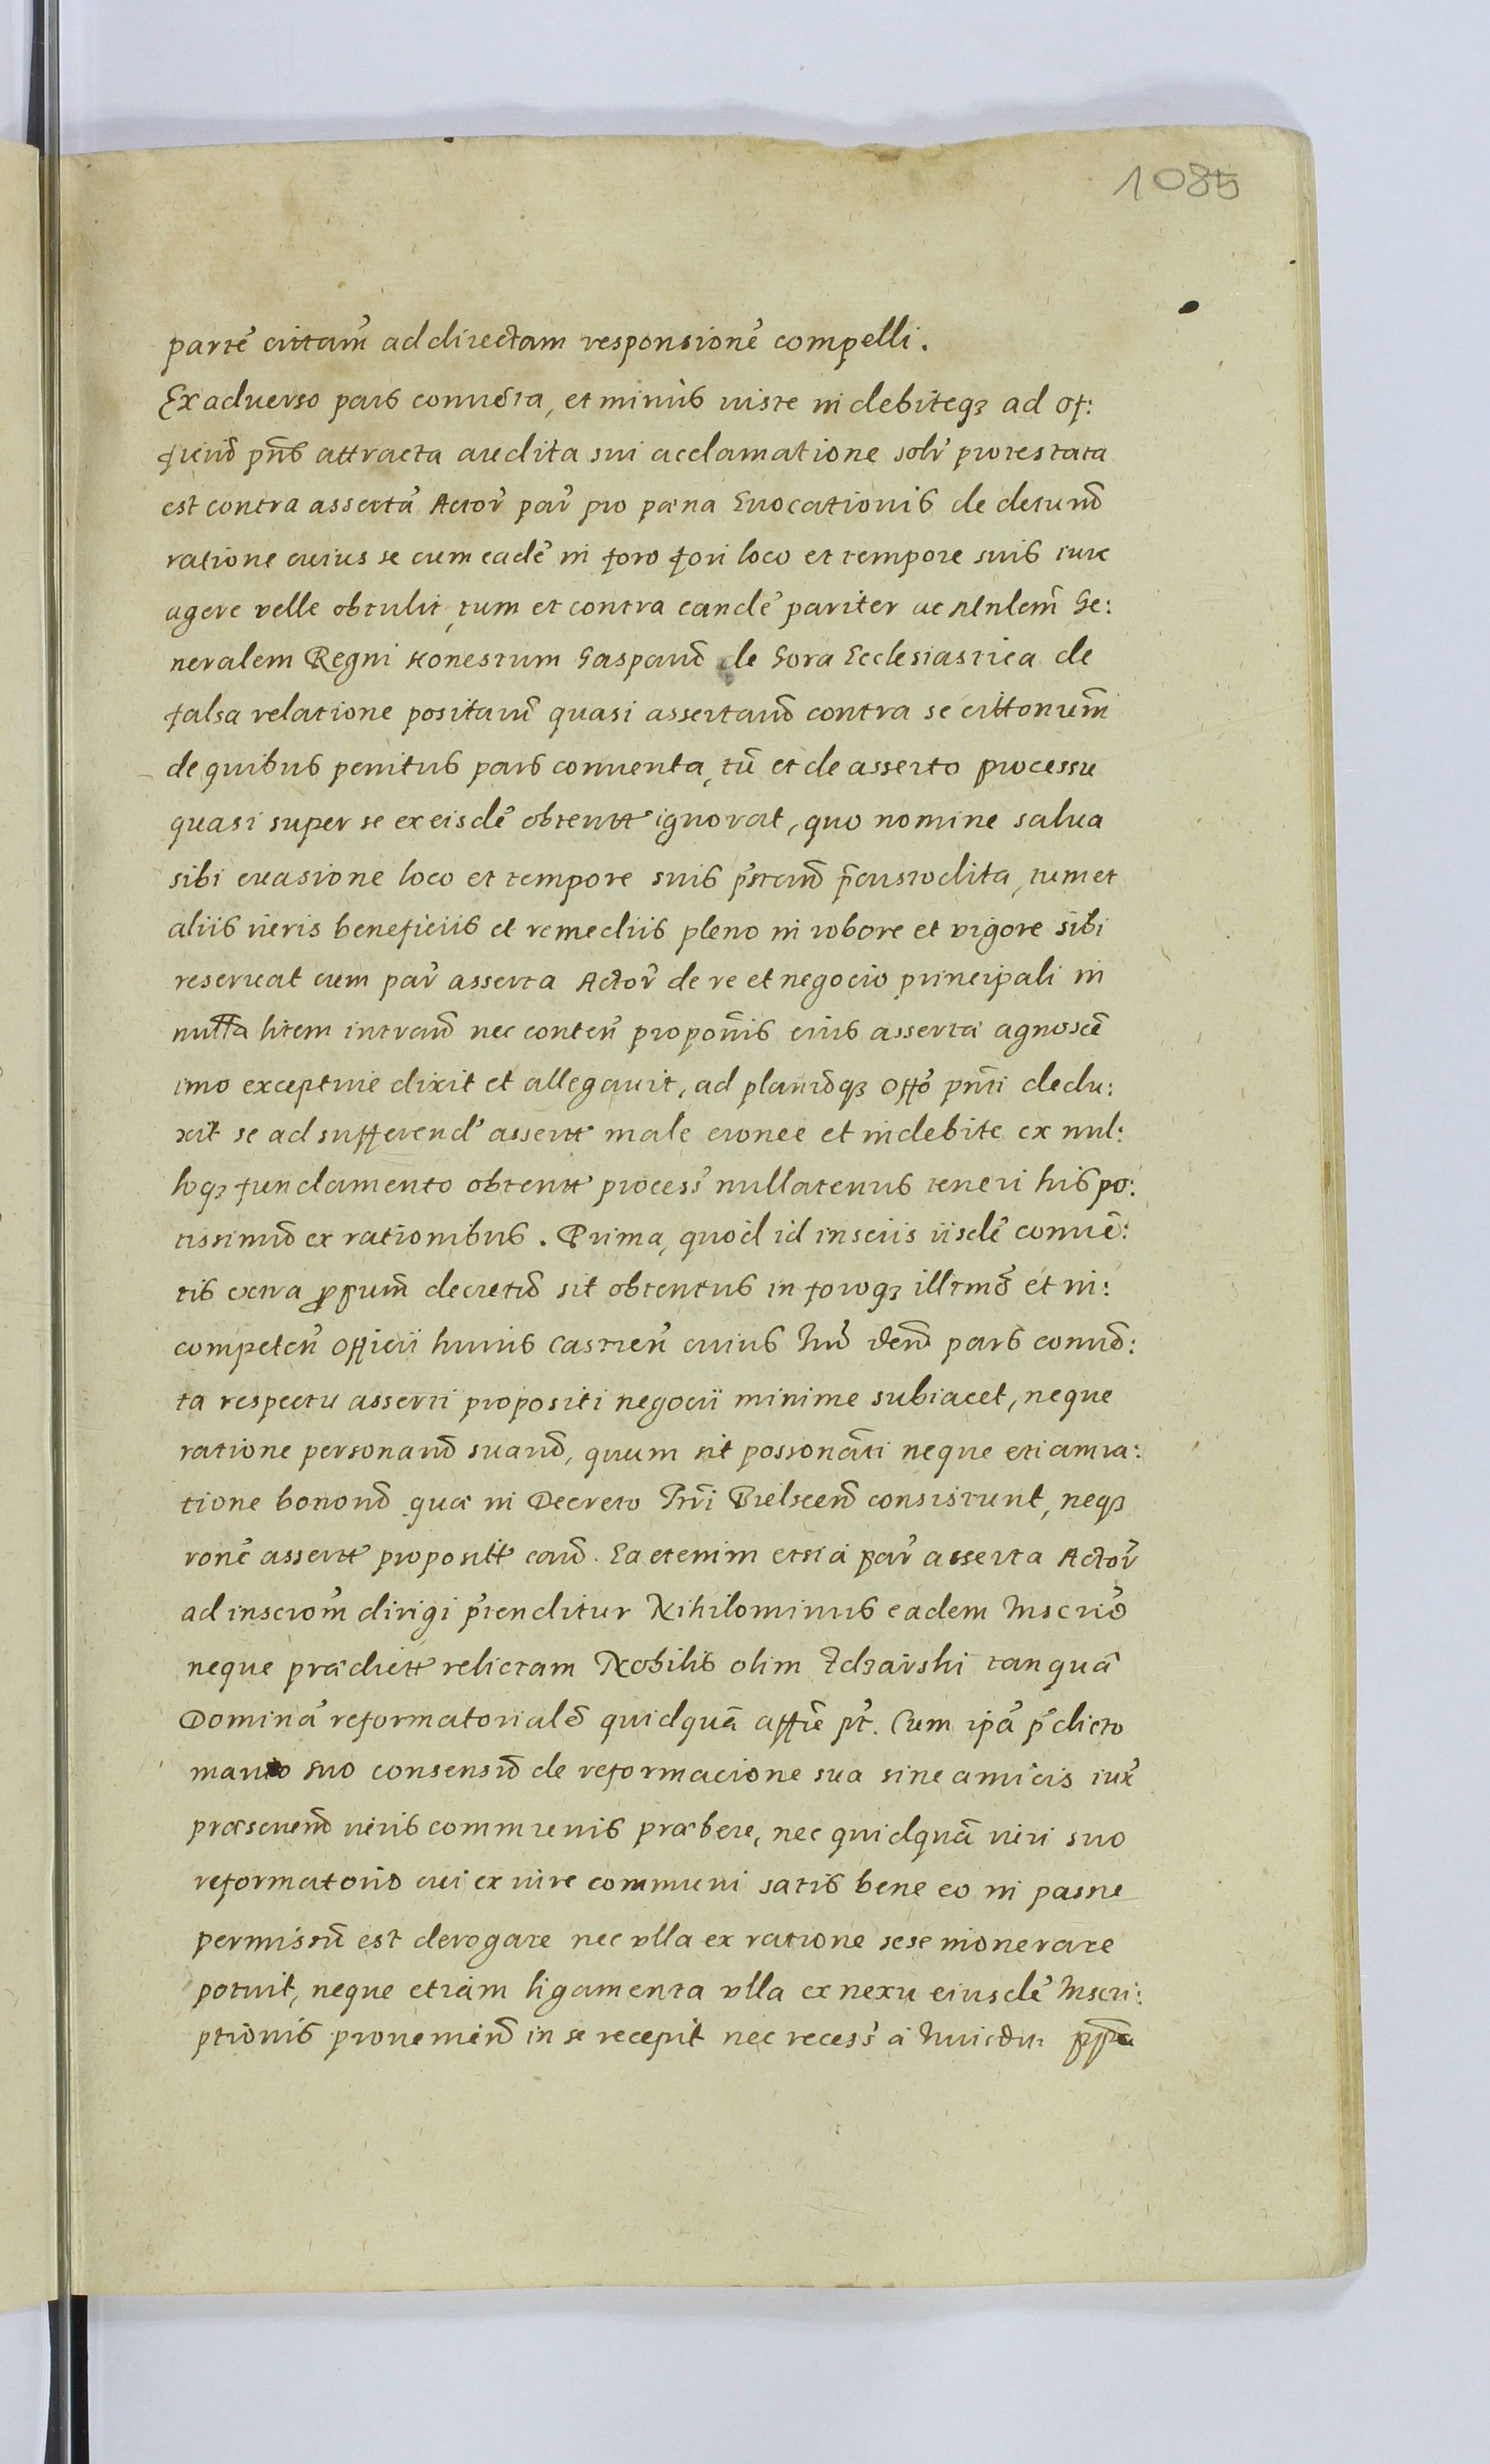 1085
partē cittam̄ ad directam responsionē compelli.
Ex aduerso pars conuēta, et minus iuste indebiteqз ad of:
ficiū pn̄s attracta audita sui acclamatione solr̄ protestata
est contra assertā Actor̄ par̄ pro pæna Euocationis de
ratione cuius se cum eadē in foro fori loco et tempore suis iure
agere velle obtulit, tum et contra eandē pariter ac Ge:
neralem Regni Honestum Gaspar de Gora Ecclesiastica de
falsa relatione quasi contra se
de quibus penitus pars conuenta, tū et de asserto processu
quasi super se ex eisdē ignorat, quo nomine salua
sibi euasione loco et tempore suis p̄custodita, tum et
aliis iuris beneficiis et remediis pleno in robore et vigore sibi
reseruat cum par̄ asserta Actor̄ de re et negocio principali in
nulla litem nec conten̄ propon̄is eius asserta agnoscē
imo exceptiue dixit et allegauit, ad planūqз Offō pn̄ti dedu:
xit se ad sufferend̄ assert male eronee et indebite ex nul:
loqз fundamento obtent process̄ nullatenus teneri his po:
tissimū ex rationibus. Prima, quod id insciis iisdē conuē:
tis extra decretū sit obtentus in foroqз illitmō et in:
competen̄ Officii huius Castren̄ cuius pars conuē:
ta respectu asserti propositi negocii minime subiacet, neque
ratione suarū, quum sit possonāti neque etiam ra:
tione bonorū quæ in Decreto Trri Bielscen̄ consistunt, neqз
ronē assert proposit . Ea etenim etsi à par̄ asserta Actor̄
ad inscrōm̄ dirigi p̄tenditur Nihilominus eadem Inscriō
neque prædict relictam Nobilis olim Zdzarski tanquā
Dominā reformatorialē quidquā affiē pt̄. Cum ipā p̄dicto
marito suo consensū de reformacione sua sine amicis iux̄
iuris communis præbere, nec quidquā iuri suo
reformatorio cui ex iure communi satis bene eo in passu
permissū est derogare nec vlla ex ratione sese inonerare
potuit, neque etiam ligamenta vlla ex nexu eiusdē Inscri:
ptionis in se recepit nec recess̄ à